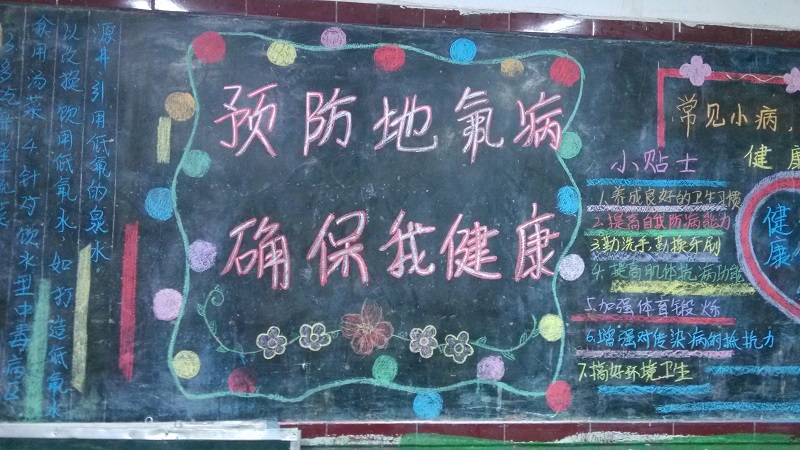 食用汤菜.4.针对饮水型中毒病区
以改提饮用低氧水,如打造低氧水
源井,引用低氧的泉水.
预防地氟病
确保我健康
常见小病,
健康
小贴士
1.养成良好的卫生习惯
2.提高自我防病能力
3.勤洗手勤换牙刷
4.提高肌体抗病功能
5.加强体育锻炼
6.增强对传染病的抵抗力
7.搞好环境卫生
健
康